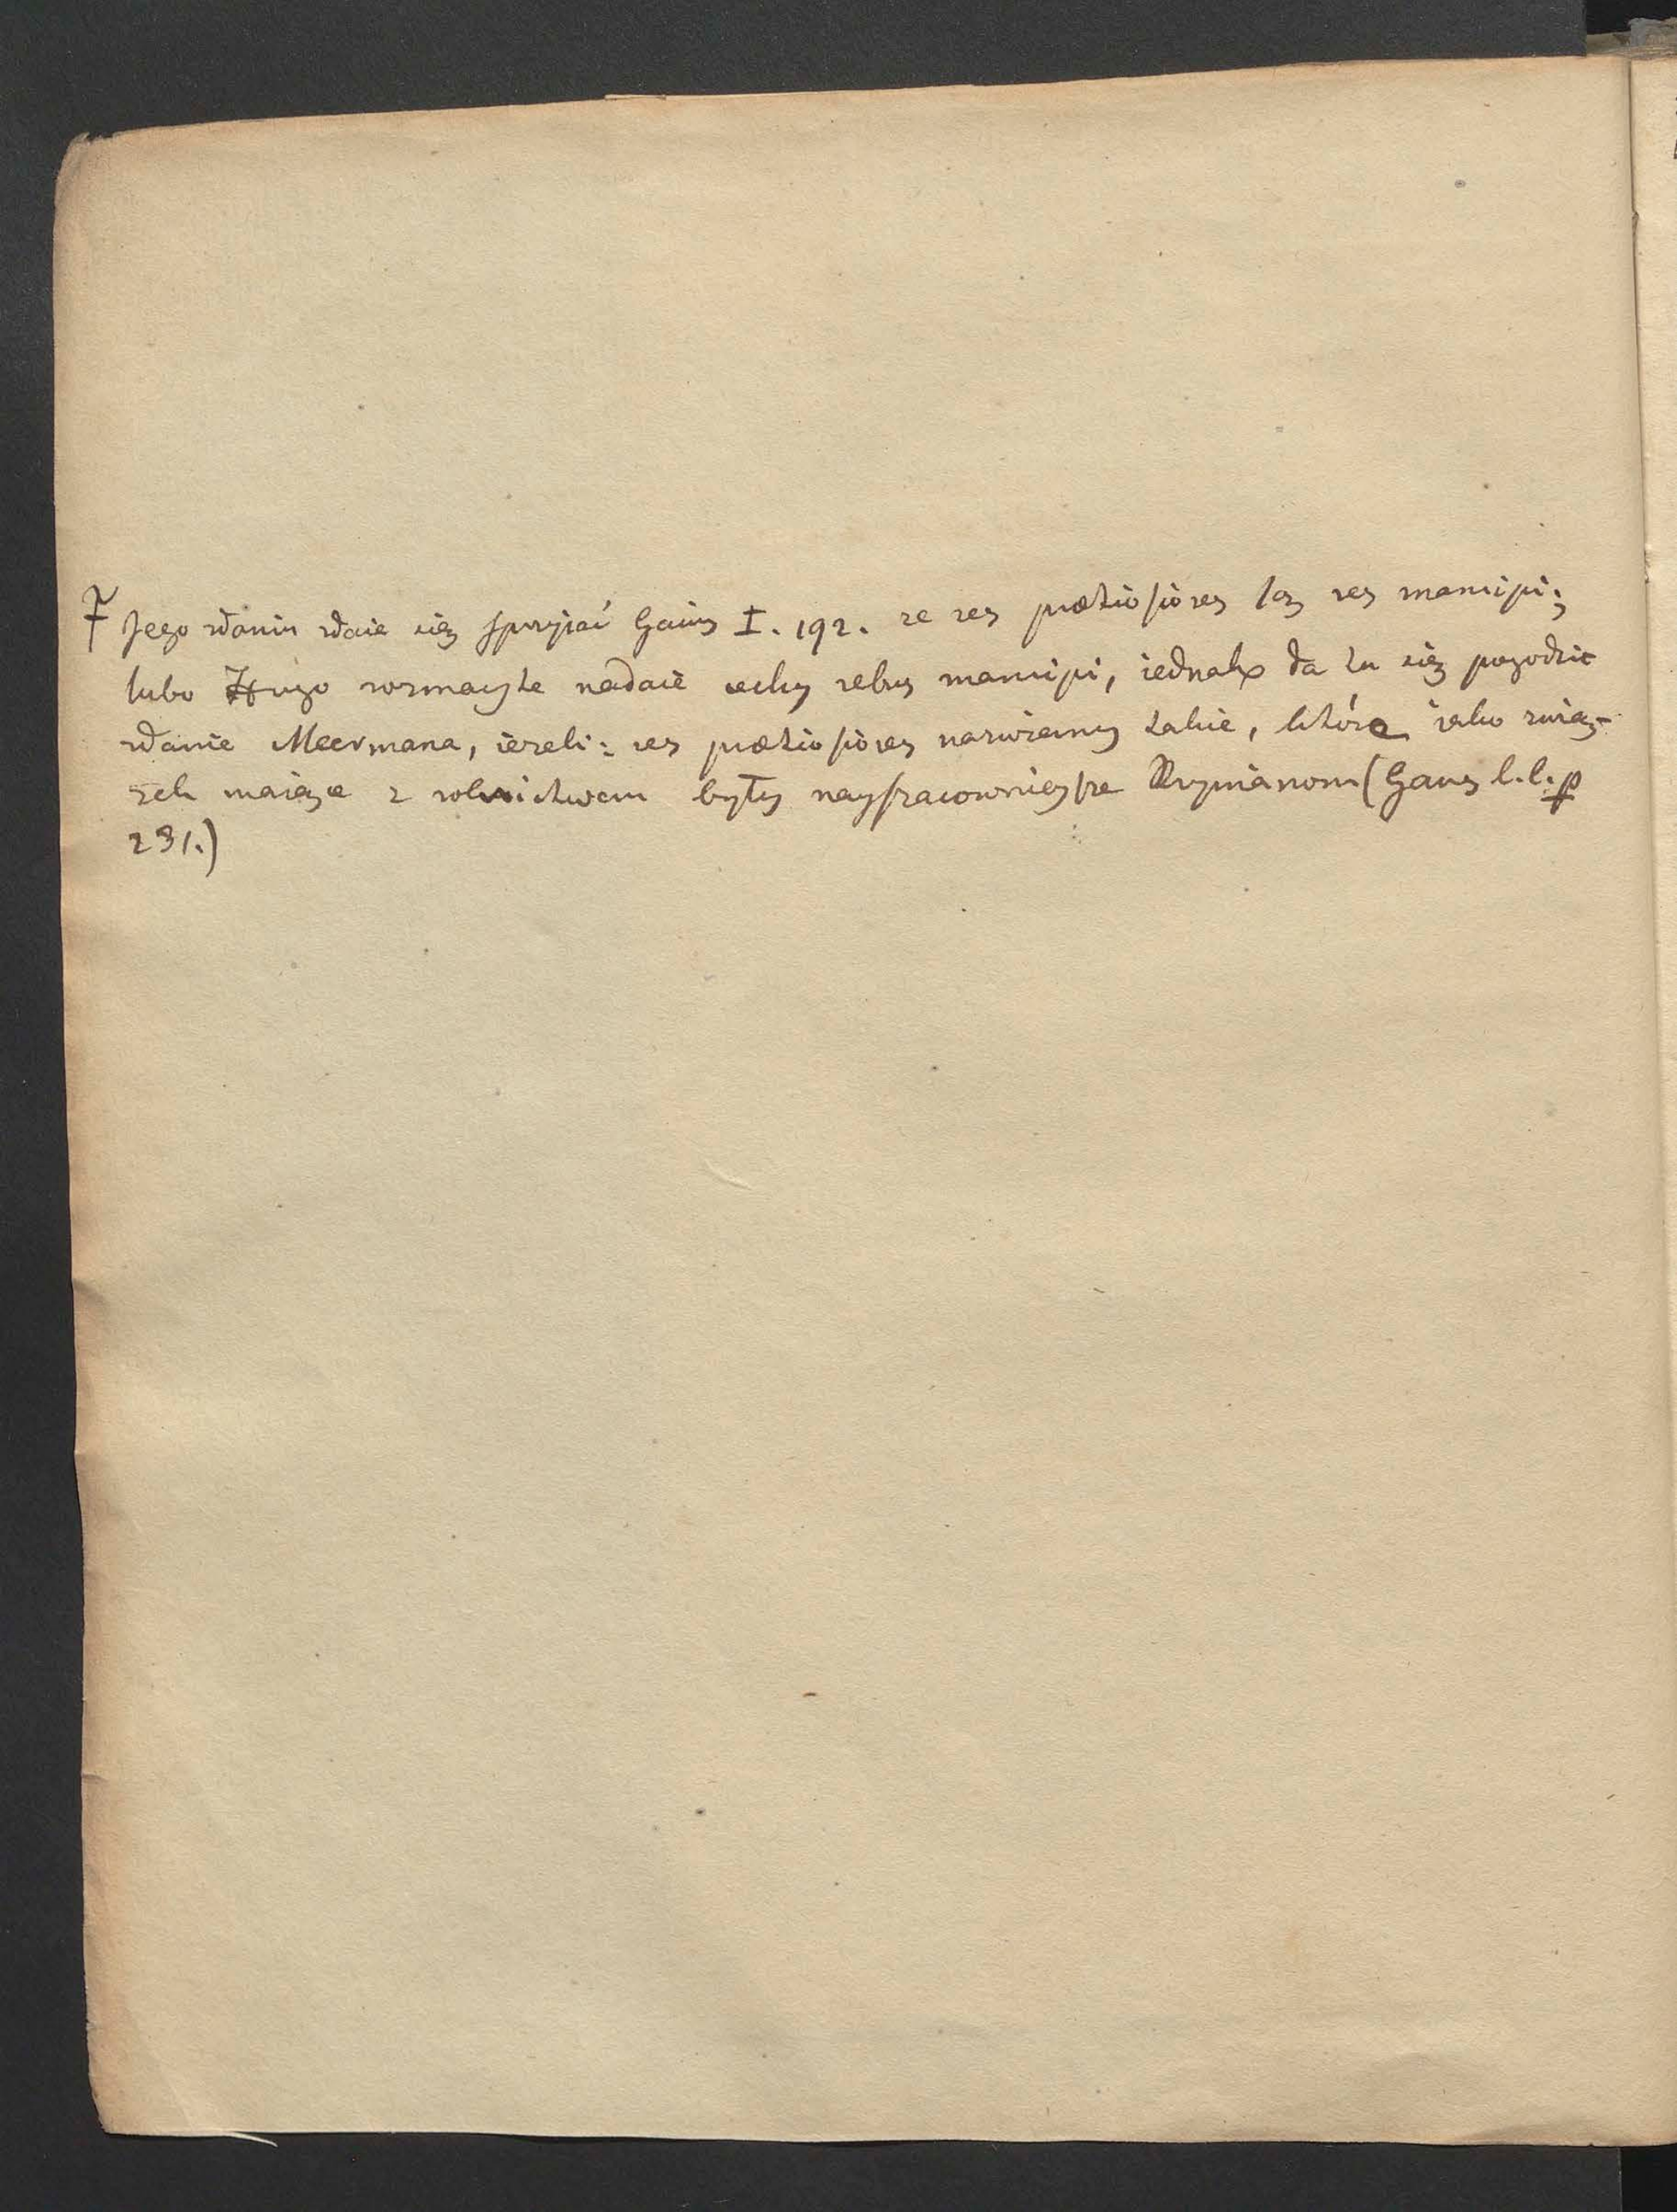 ‡ Jego zdaniu zdaie się spryjać Gaius I. 192. ze res pretiosiores są res mancipi;
lubo Hugo rozmayte nadaie cechy rebus mancipi, iednakże da tu się pogodzić
zdanie Meermana, iezeli: res pretiosiores nazwiemy takie, które iako zwią-
zek maiące z rolnictwem były nayszacownieysze Rzymianom (Gans l.l. p
231.)